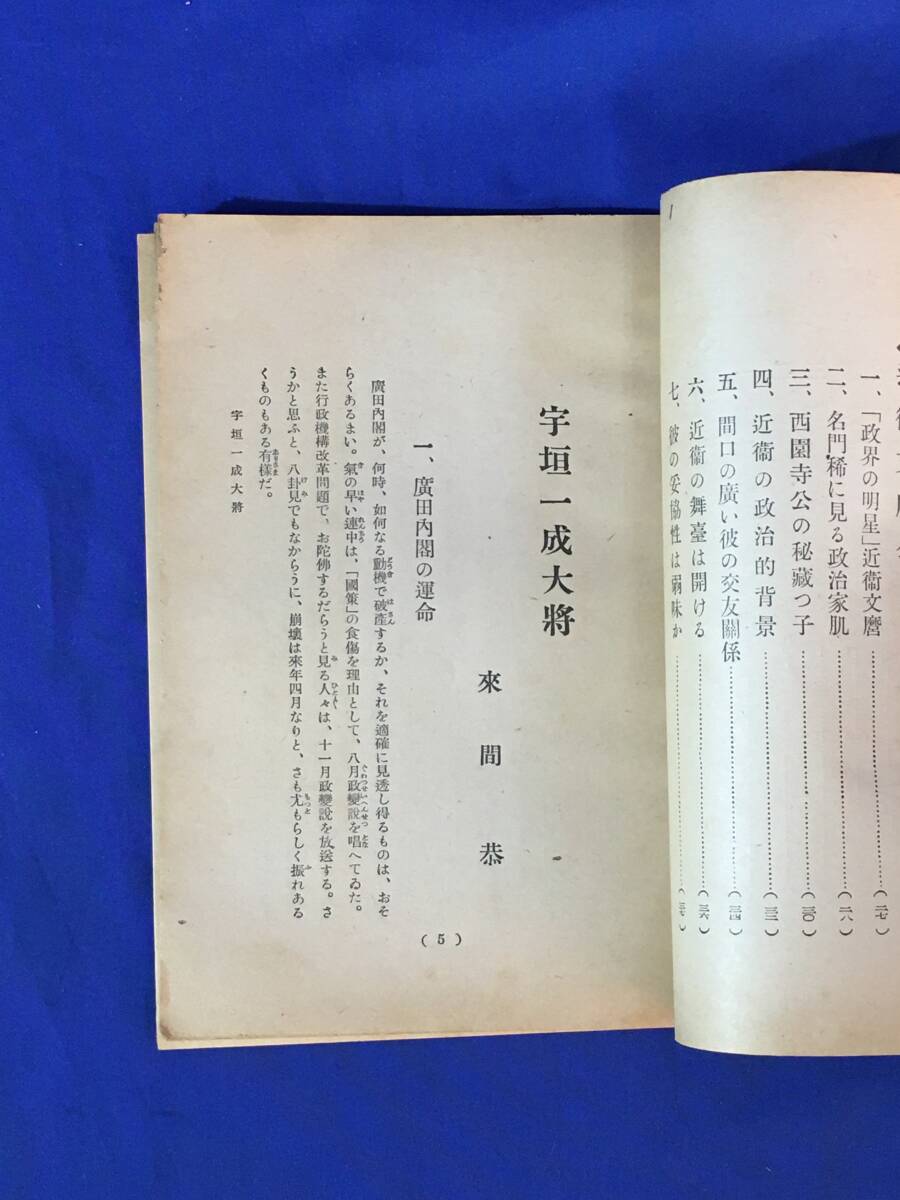 一、「政界の明星」近衞文麿…………(二七)
二、名門稀に見る政治家肌…………(二八)
三、西園寺公の秘藏つ子…………(三〇)
四、近衞の政治的背景…………(三二)
五、間口の廣い彼の交友關係…………(三四)
六、近衞の舞臺は開ける…………(三六)
七、彼の妥協性は弱味か…………
宇垣一成大將
來間恭
一、廣田內閣の運命
廣田內閣が、何時、如何なる動機で破產するか、それを適確に見透し得るものは、おそ
らくあるまい。氣の早い連中は、「國策」の食傷を理由として、八月政變說を唱へてゐた。
また行政機構改革問題で、お陀佛するだらうと見る人々は、十一月政變說を放送する。さ
うかと思ふと、八卦見でもなからうに、崩壞は來年四月なりと、さも尤もらしく振れある
くものもある有樣だ。
宇垣一成大將
(5)